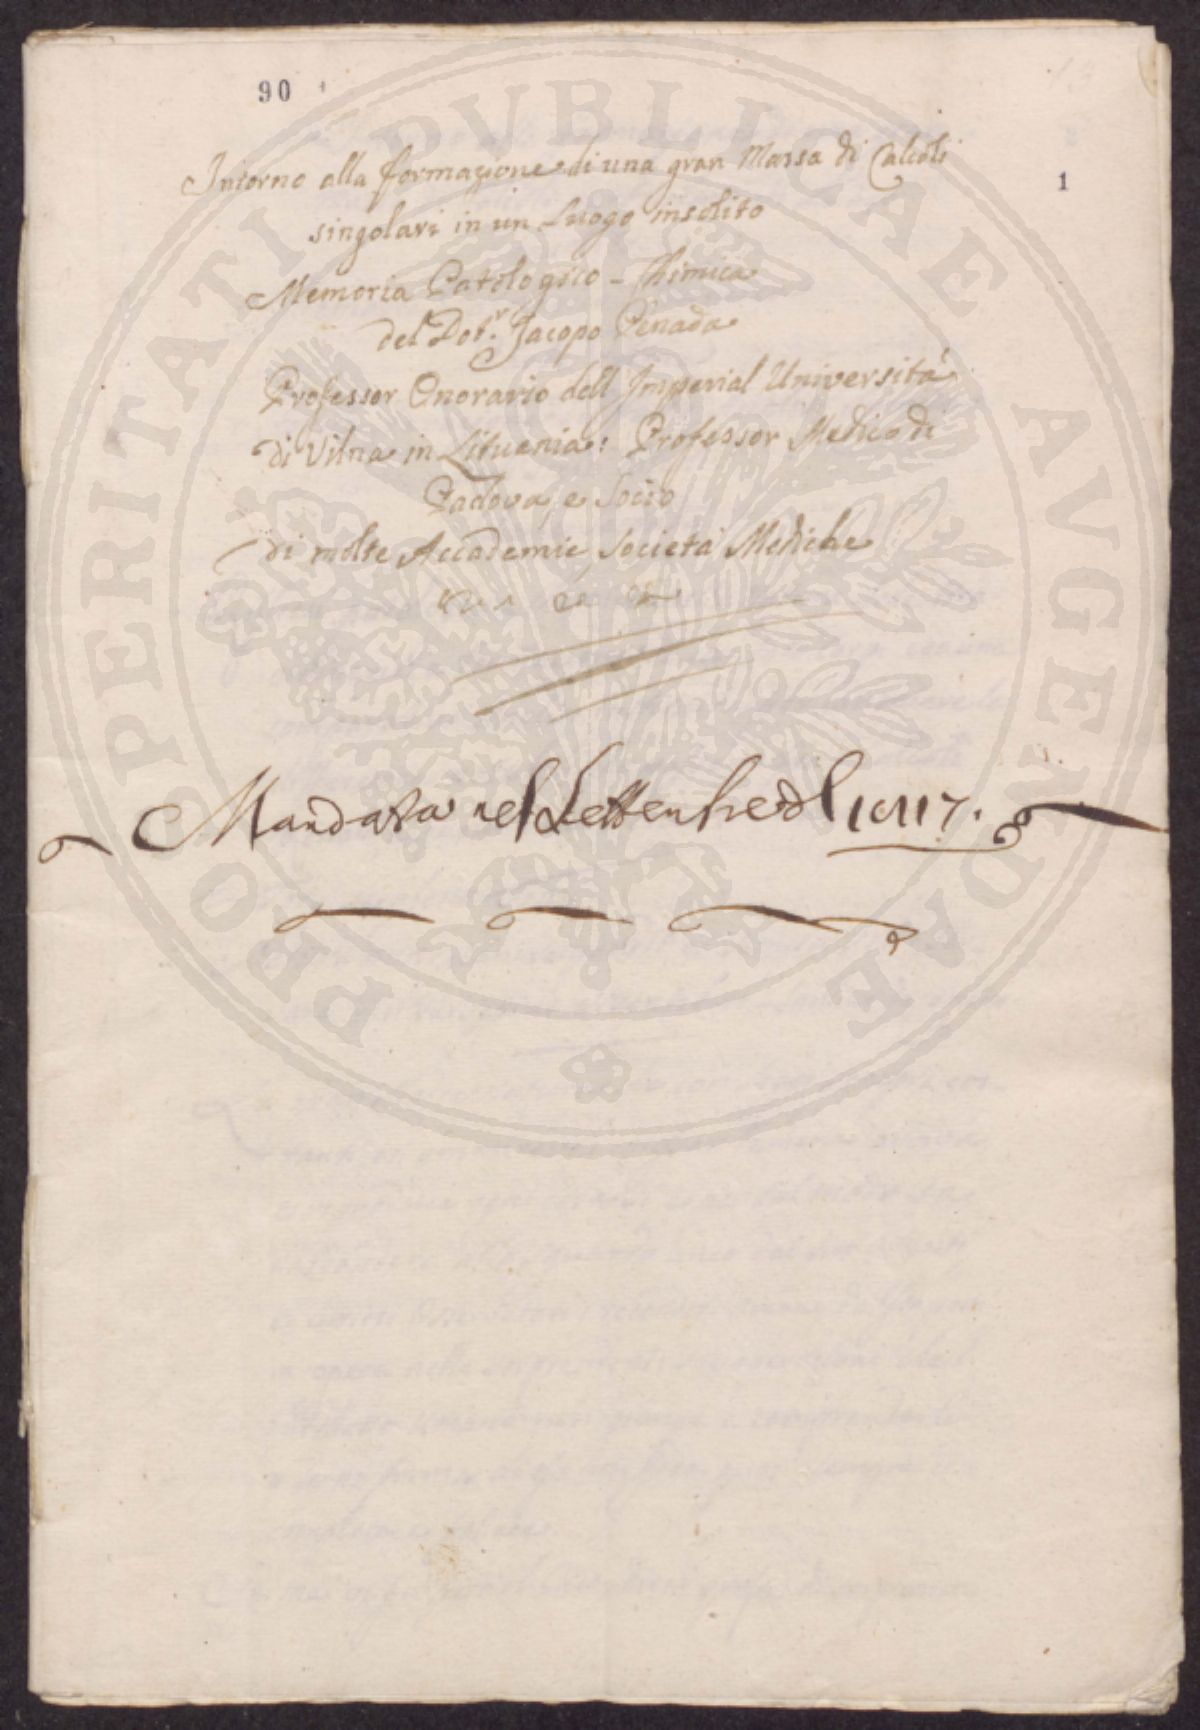 90
1
Intorno alla formazione di una gran Massa di Calcoli
singolari in un Luogo insolito
Memoria Patologico - Chimica
del Dotr. Jacopo Penada
Professor Onorario dell Imperial Università
di Vilna in Lituania: Professor Medico di
Padova, e Socio
di molte Accademie, Società Mediche
Mandata nel
PROSPERITATI PVBLICAE AVGENDAE